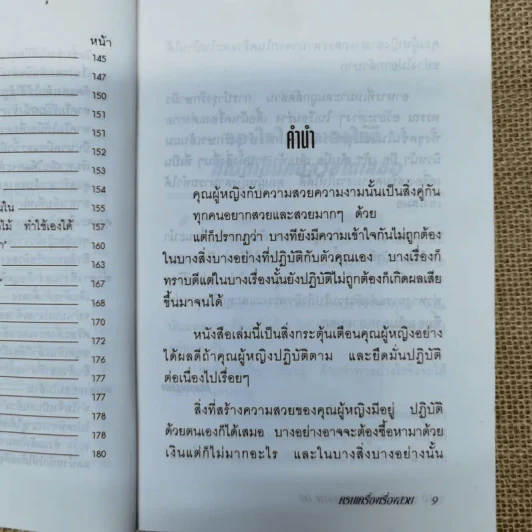 หน้า
145
147
150
151
152
153
154
นใน 155
ไม้ ทำใช้เองได้ 157
160
163
167
168
170
172
174
176
177
178
178
180
คำนำ
คุณผู้หญิงกับความสวยความงามนั้นเป็นสิ่งคู่กัน
ทุกคนอยากสวยและสวยมากๆ ด้วย
แต่ก็ปรากฏว่า บางทียังมีความเข้าใจกันไม่ถูกต้อง
ในบางสิ่งบางอย่างที่ปฏิบัติกับตัวคุณเอง บางเรื่องก็
ทราบดีแต่ในบางเรื่องนั้นยังปฏิบัติไม่ถูกต้องก็เกิดผลเสีย
ขึ้นมาจนได้
หนังสือเล่มนี้เป็นสิ่งกระตุ้นเตือนคุณผู้หญิงอย่าง
ได้ผลดีถ้าคุณผู้หญิงปฏิบัติตาม และยึดมั่นปฏิบัติ
ต่อเนื่องไปเรื่อยๆ
สิ่งที่สร้างความสวยของคุณผู้หญิงมีอยู่ ปฏิบัติ
ด้วยตนเองก็ได้เสมอ บางอย่างอาจจะต้องซื้อหามาด้วย
เงินแต่ก็ไม่มากอะไร และในบางสิ่งบางอย่างนั้น
ครบเครื่องเรื่องสวย 9